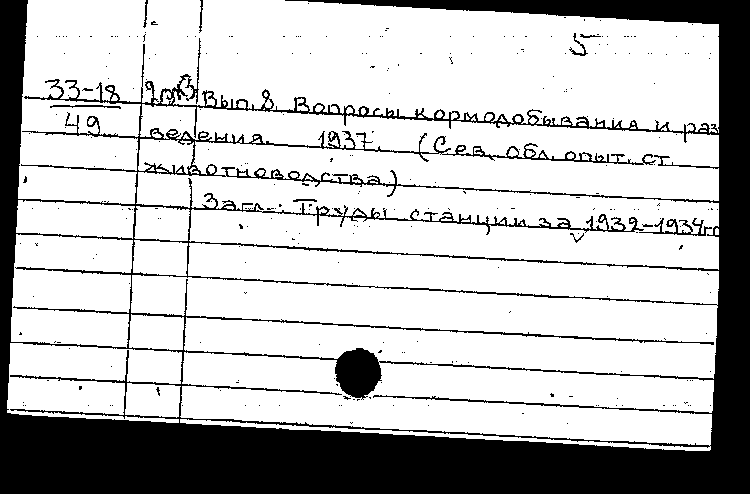 5
33-18
49
Вып. 8. Вопросы кормодобывания и раз
ведения. 1937. (Сев. обл. опыт. ст.
животноводства.)
Загл.: Труды станции за 1932-1934гг